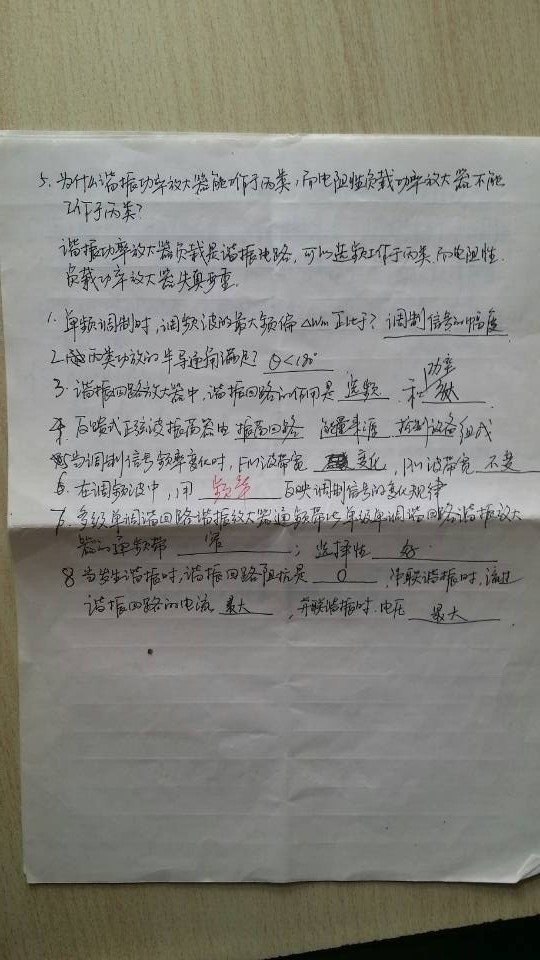 5. 为什么谐振功率放大器能工作于丙类，而电阻性负载功率放大器不能
工作于丙类？
谐振功率放大器负载是谐振电路，可以选频工作于丙类，而电阻性
负载功率放大器失真严重。
1. 单频调制时，调频波的最大频偏 Δωm 正比于？ 调制信号的幅度
2. 丙类功放的半导通角满足？ θ<180°
功率
3. 谐振回路放大器中，谐振回路的作用是 选频 和
4. 反馈式正弦波振荡器由 振荡回路 能量来源 控制设备组成
5 当调制信号频率变化时，FM波带宽 变化，PM波带宽 不变
6. 在调频波中，用 频率 反映调制信号的变化规律
7. 多级单调谐回路谐振放大器通频带比单级单调谐回路谐振放大
器的通频带 窄 ；选择性 好
8 当发生谐振时，谐振回路阻抗是 0 ，串联谐振时，流过
谐振回路的电流 最大 ，并联谐振时，电压 最大